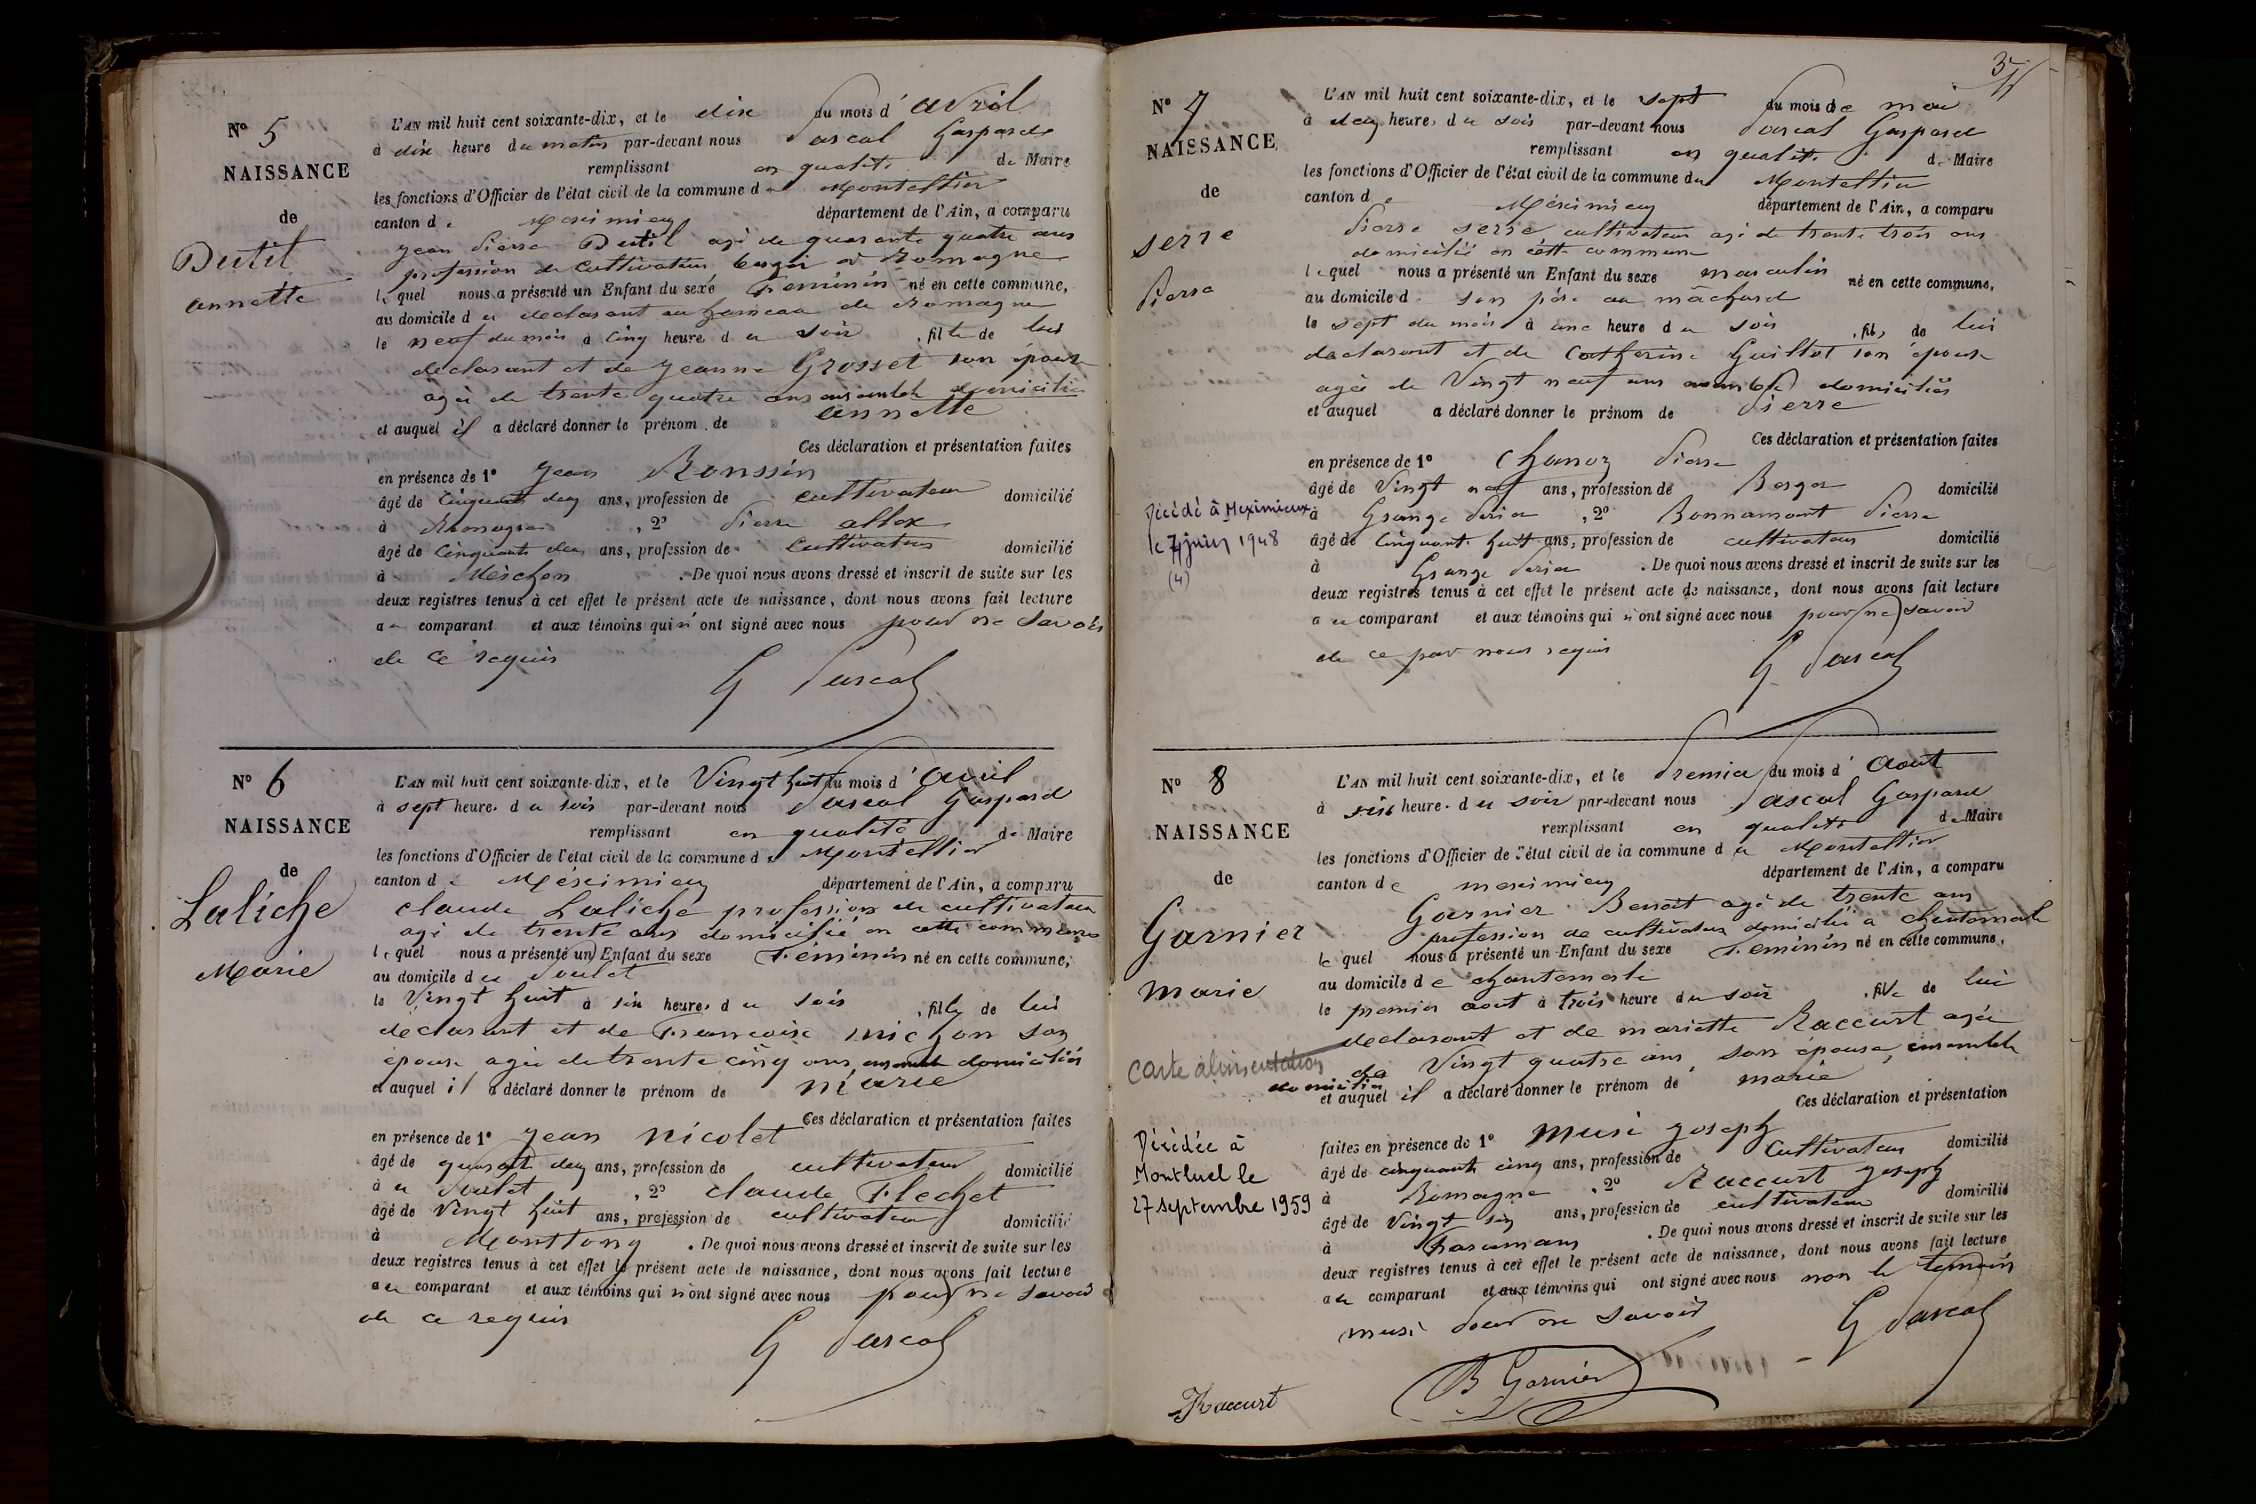 N° 5
NAISSANCE
de
Dutil
annette
L'AN mil huit cent soixante-dix, et le dix du mois d'avril
à dix heure du matin par-devant nous Pascal Gaspard
remplissant en qualité de Maire
les fonctions d'Officier de l'état civil de la commune de Montellier
canton de Méximieux département de l'Ain, a comparu
jean Pierre Dutil agé de quarante quatre ans
profession de cultivateur berger à Romagne
lequel nous a présenté un Enfant du sexe Féminin né en cette commune,
au domicile du declarant au hameau de Romagne
le neuf du mois à cinq heure du soir, fille de lui
déclarant et de jeanne Grosset son épouse
agée de trente quatre ans ensemble domiciliés
et auquel il a déclaré donner le prénom de annette
Ces déclaration et présentation faites
en présence de 1° jean Ronssin
âgé de cinquante deux ans, profession de cultivateur domicilié
à Romagne, 2° Pierre allex
âgé de cinquante deux ans, profession de cultivateur domicilié
à Méschon. De quoi nous avons dressé et inscrit de suite sur les
deux registres tenus à cet effet le présent acte de naissance, dont nous avons fait lecture
au comparant et aux témoins qui n'ont signé avec nous pour ne savoir
de ce requis
G Pascal
N° 6
NAISSANCE
de
Laliche
Marie
L'AN mil huit cent soixante-dix, et le Vingt huit du mois d'avril
à sept heures du soir par-devant nous Pascal Gaspard
remplissant en qualité de Maire
les fonctions d'Officier de l'état civil de la commune de Montellier
canton de Méximieux département de l'Ain, a comparu
claude Laliche profession de cultivateur
agé de trente ans domicilié en cette commune
lequel nous a présenté un Enfant du sexe Féminin né en cette commune,
au domicile du Poulet
le Vingt huit à six heures du soir, fille de lui
déclarant et de Francoise michon son
épouse agée de trente cinq ans ensemble domiciliés
et auquel il a déclaré donner le prénom de marie
Ces déclaration et présentation faites
en présence de 1° jean nicolet
âgé de quarante deux ans, profession de cultivateur domicilié
à au Poulet, 2° claude Flechet
âgé de Vingt huit ans, profession de cultivateur domicilié
à Monttony. De quoi nous avons dressé et inscrit de suite sur les
deux registres tenus à cet effet le présent acte de naissance, dont nous avons fait lecture
au comparant et aux témoins qui n'ont signé avec nous pour ne savoir
de ce requis
G Pascal
3
N° 7
NAISSANCE
de
serre
Pierre
Décédé à Meximieux
le 7 juin 1948
(4)
L'AN mil huit cent soixante-dix, et le sept du mois de mai
à deux heures du soir par-devant nous Pascal Gaspard
remplissant en qualité de Maire
les fonctions d'Officier de l'état civil de la commune du Montellier
canton de Méximieux département de l'Ain, a comparu
Pierre serre cultivateur agé de trente trois ans
domicilié en cette commune
lequel nous a présenté un Enfant du sexe masculin né en cette commune,
au domicile de son père au mâchard
le sept du mois à une heure du soir, fils de lui
declarant et de Catherine Guillot son épouse
agée de Vingt neuf ans ensemble domiciliés
et auquel a déclaré donner le prénom de Pierre
Ces déclaration et présentation faites
en présence de 1° Chanoz Pierre
âgé de Vingt neuf ans, profession de Berger domicilié
à Grange Perier, 2° Bonnamour Pierre
âgé de cinquante huit ans, profession de cultivateur domicilié
à Grange Perier. De quoi nous avons dressé et inscrit de suite sur les
deux registres tenus à cet effet le présent acte de naissance, dont nous avons fait lecture
au comparant et aux témoins qui n'ont signé avec nous pour ne savoir
de ce par nous requis
G Pascal
N° 8
NAISSANCE
de
Garnier
marie
Carte alimentation
Décédée à
Montluel le
27 septembre 1959
L'AN mil huit cent soixante-dix, et le Premier du mois d'Aout
à six heure du soir par-devant nous Pascal Gaspard
remplissant en qualité de Maire
les fonctions d'Officier de l'état civil de la commune du Montellier
canton de meximieux département de l'Ain, a comparu
Garnier Benoit agé de trente ans
profession de cultivateur domicilié à chantemerle
lequel nous a présenté un Enfant du sexe Féminin né en cette commune,
au domicile de chantemerle
le premier aout à trois heure du soir, fille de lui
declarant et de mariette Raccurt agée
de Vingt quatre ans son épouse, ensemble
domiciliés
et auquel il a déclaré donner le prénom de marie
Ces déclaration et présentation
faites en présence de 1° musi joseph
âgé de cinquante cinq ans, profession de Cultivateur domicilié
à Romagne, 2° Raccurt joseph
âgé de Vingt six ans, profession de cultivateur domicilié
à. De quoi nous avons dressé et inscrit de suite sur les
deux registres tenus à cet effet le présent acte de naissance, dont nous avons fait lecture
au comparant et aux témoins qui ont signé avec nous non le temoin
musi pour ne savoir
G Pascal
B Garnier
J Raccurt